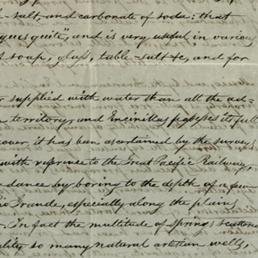 salt, and carbonate of soda: that
quesquite", and is very useful in various
soap, glass, table-salt &c, and for
supplied with water than all the ad-
territory, and Encinillas possesses its full
over, it has been ascertained by the surveys
with reference to the Great Pacific Railway,
dance by boring to the depth of a few
Grande, especially along the plains
In fact the multitude of springs scattered
ality so many natural artesian wells,